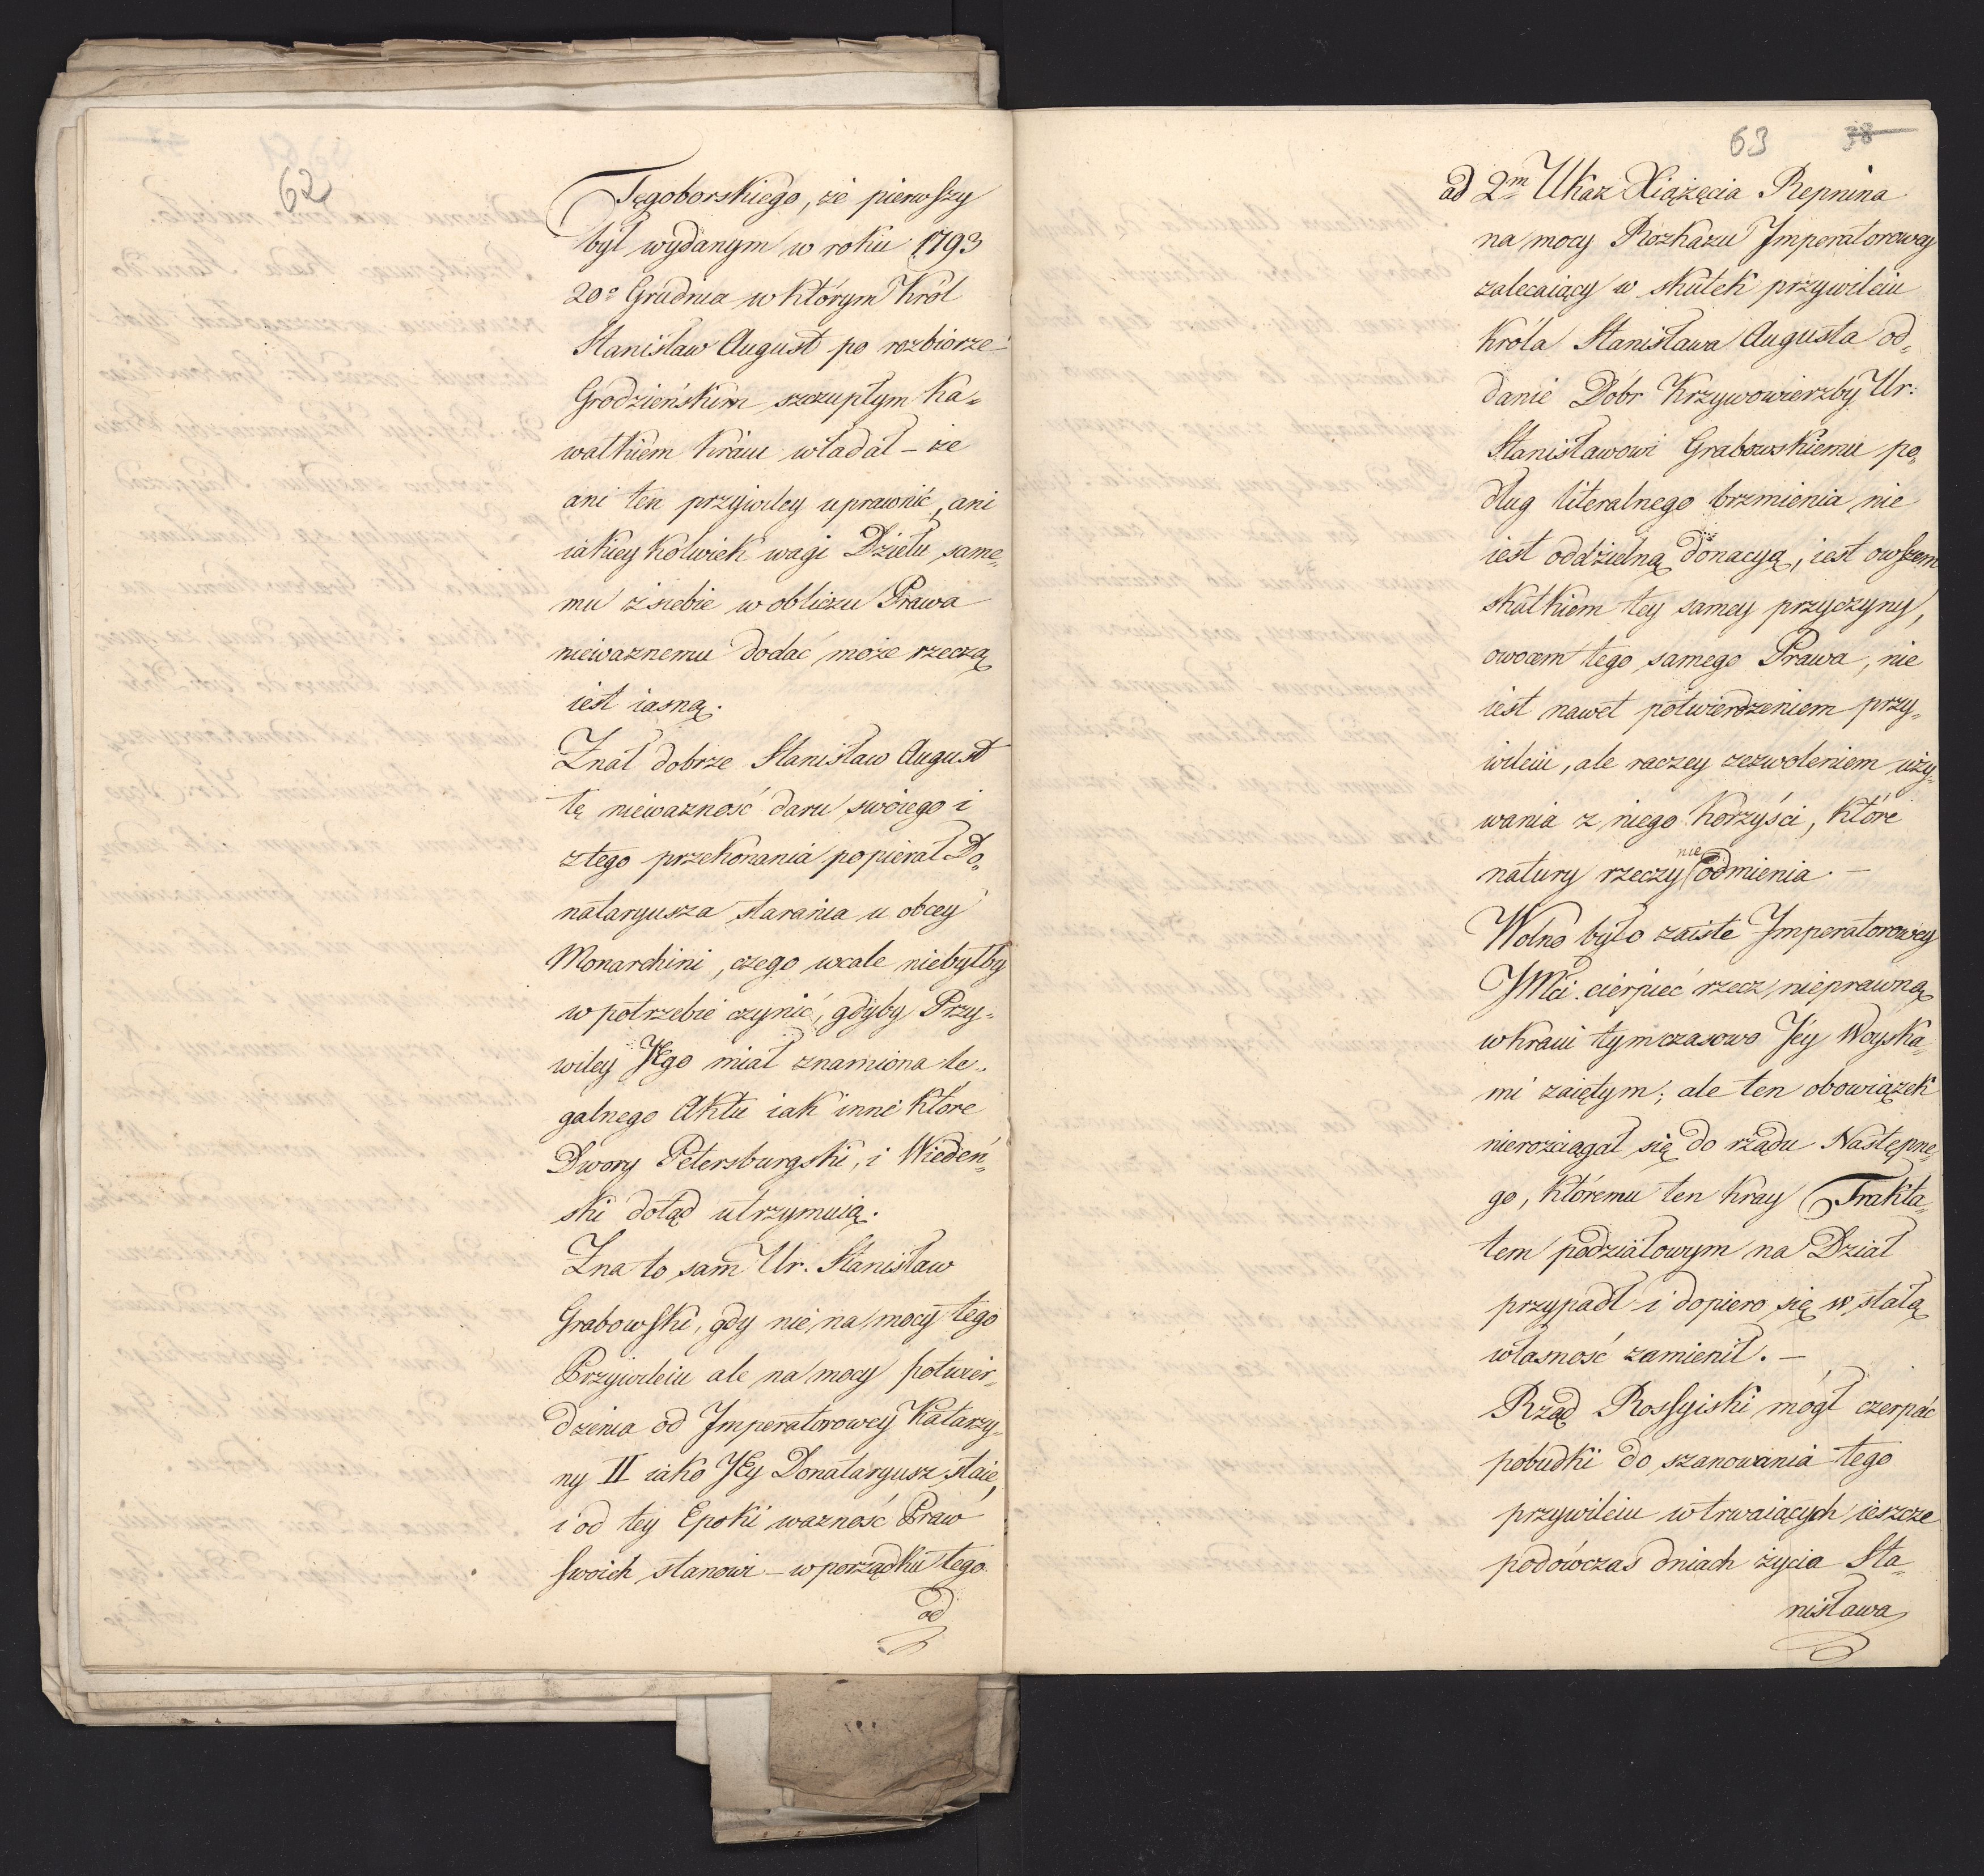 62
Tęgoborskiego, że pierwszy
był wydanym w roku 1793
20º Grudnia w którym Król
Stanisław August po rozbiorze
Grodzieńskim szczupłym ka„
wałkiem kraiu władał – że
ani ten przywiley uprawnić, ani
iakiey kolwiek wagi Dziełu same„
mu z siebie w obliczu Prawa
nieważnemu dodać może rzeczą
iest iasną.
Znał dobrze Stanisław August
tę nieważność daru swoiego i
z tego przekonania popierał Do„
nataryusza starania u obcey
Monarchini, czego wcale niebyłby
w potrzebie czynić, gdyby Przy„
wiley Jego miał znamiona le„
galnego Aktu iak inne które
Dwory Petersburgski, i Wiedeń„
ski dotąd utrzymuią.
Zna to sam Ur. Stanisław
Grabowski, gdy nie na mocy tego
Przywileiu ale na mocy potwier„
dzenia od Imperatorowey Katarzy„
ny II iako Jey Donataryusz staie,
i od tey Epoki ważność Praw
swoich stanowi – w porządku tego
od
63 38
ad 2m Ukaz Xiążęcia Repnina
na mocy Rozkazu Imperatorowey
zalecaiący w skutek przywileiu
Króla Stanisława Augusta od„
danie Dóbr Krzywowierzby Ur.
Stanisławowi Grabowskiemu po„
dług literalnego brzmienia nie
iest oddzielną donacyą, iest owszem
skutkiem tey samey przyczyny,
owocem tego samego Prawa, nie
iest nawet potwierdzeniem przy„
wileiu, ale raczey zezwoleniem uży„
wania z niego korzyści, które
natury rzeczy nie odmienia. –
Wolno było zaiste Imperatorowey
JMci cierpieć rzecz nieprawną
w kraiu tymczasowo Jéy Woyska„
mi zaiętym; ale ten obowiązek
nierozciągał się do rządu Następne„
go, któremu ten kray Trakta„
tem podziałowym na Dział
przypadł i dopiero się w stałą
własność zamienił. –
Rząd Rossyiski mógł czerpać
pobudki do szanowania tego
przywileiu w trwaiących ieszcze
podówczas dniach życia Sta„
nisława